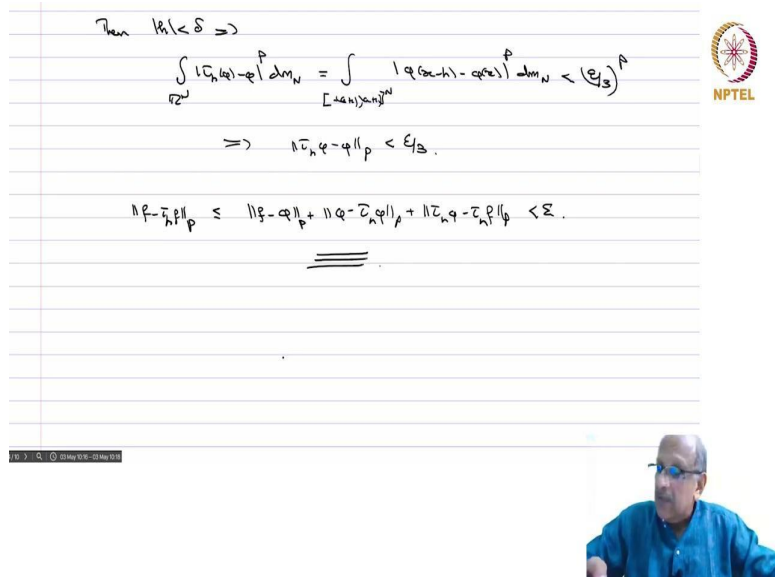 Then |h| < δ ⇒
∫_{ℝ^N} |τ_h(φ) - φ|^p dm_N = ∫_{[-(a+1), a+1]^N} |φ(x-h) - φ(x)|^p dm_N < (ε/3)^p
⇒ ||τ_h φ - φ||_p < ε/3.
||f - τ_h f||_p ≤ ||f - φ||_p + ||φ - τ_h φ||_p + ||τ_h φ - τ_h f||_p < ε.
NPTEL
/10 03 May 10:16 - 03 May 10:18